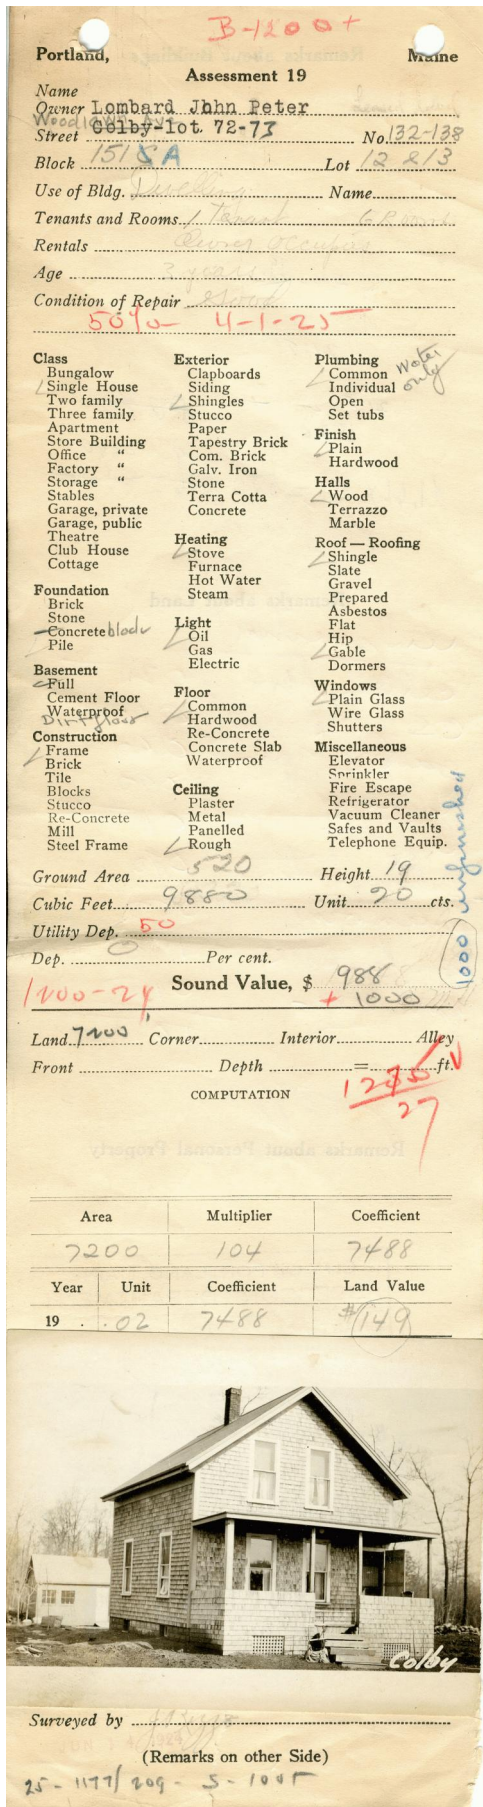 B-1200+
Portland, Maine
Assessment 19
Name
Owner Lombard John Peter
Woodlawn Ave
Street Colby-lot. 72-73 No. 132-138
Block 151 S A Lot 12 & 13
Use of Bldg. Dwelling Name
Tenants and Rooms 1 Tenant 6 Rooms
Rentals Owner Occupies
Age 3 years
Condition of Repair Good
50%- 4-1-25
Class
Bungalow
Single House
Two family
Three family
Apartment
Store Building
Office "
Factory "
Storage "
Stables
Garage, private
Garage, public
Theatre
Club House
Cottage
Foundation
Brick
Stone
Concrete block
Pile
Basement
Full
Cement Floor
Waterproof
Dirt floor
Construction
Frame
Brick
Tile
Blocks
Stucco
Re-Concrete
Mill
Steel Frame
Exterior
Clapboards
Siding
Shingles
Stucco
Paper
Tapestry Brick
Com. Brick
Galv. Iron
Stone
Terra Cotta
Concrete
Heating
Stove
Furnace
Hot Water
Steam
Light
Oil
Gas
Electric
Floor
Common
Hardwood
Re-Concrete
Concrete Slab
Waterproof
Ceiling
Plaster
Metal
Panelled
Rough
Plumbing
Common Water only
Individual
Open
Set tubs
Finish
Plain
Hardwood
Halls
Wood
Terrazzo
Marble
Roof — Roofing
Shingle
Slate
Gravel
Prepared
Asbestos
Flat
Hip
Gable
Dormers
Windows
Plain Glass
Wire Glass
Shutters
Miscellaneous
Elevator
Sprinkler
Fire Escape
Refrigerator
Vacuum Cleaner
Safes and Vaults
Telephone Equip.
1000 unfinished
Ground Area 520 Height 19
Cubic Feet 9880 Unit 20 cts.
Utility Dep. 50
Dep. 0 Per cent.
Sound Value, $ 988
1200-24 + 1000
Land 7200 Corner Interior Alley
Front Depth = ft.
COMPUTATION
27
Area Multiplier Coefficient
7200 104 7488
Year Unit Coefficient Land Value
19 . .02 7488 $149
Colby
Surveyed by
(Remarks on other Side)
25 - 1177/209 - S - 1005